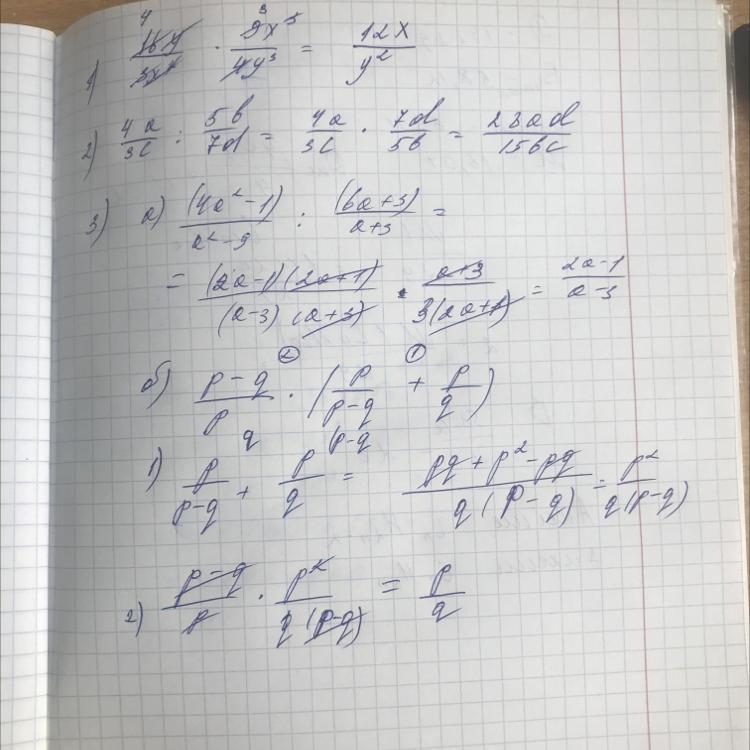 1) 16y/3x⁴ · 9x⁵/4y³ = 12x/y²
2) 4a/3c : 5b/7d = 4a/3c · 7d/5b = 28ad/15bc
3) а) (4a²-1)/a²-9 : (6a+3)/a+3 =
= (2a-1)(2a+1)/(a-3)(a+3) · a+3/3(2a+1) = 2a-1/a-3
б) p-q/p · (p/p-q + p/q)
1) p/p-q + p/q = pq+p²-pq/q(p-q) = p²/q(p-q)
2) p-q/p · p²/q(p-q) = p/q